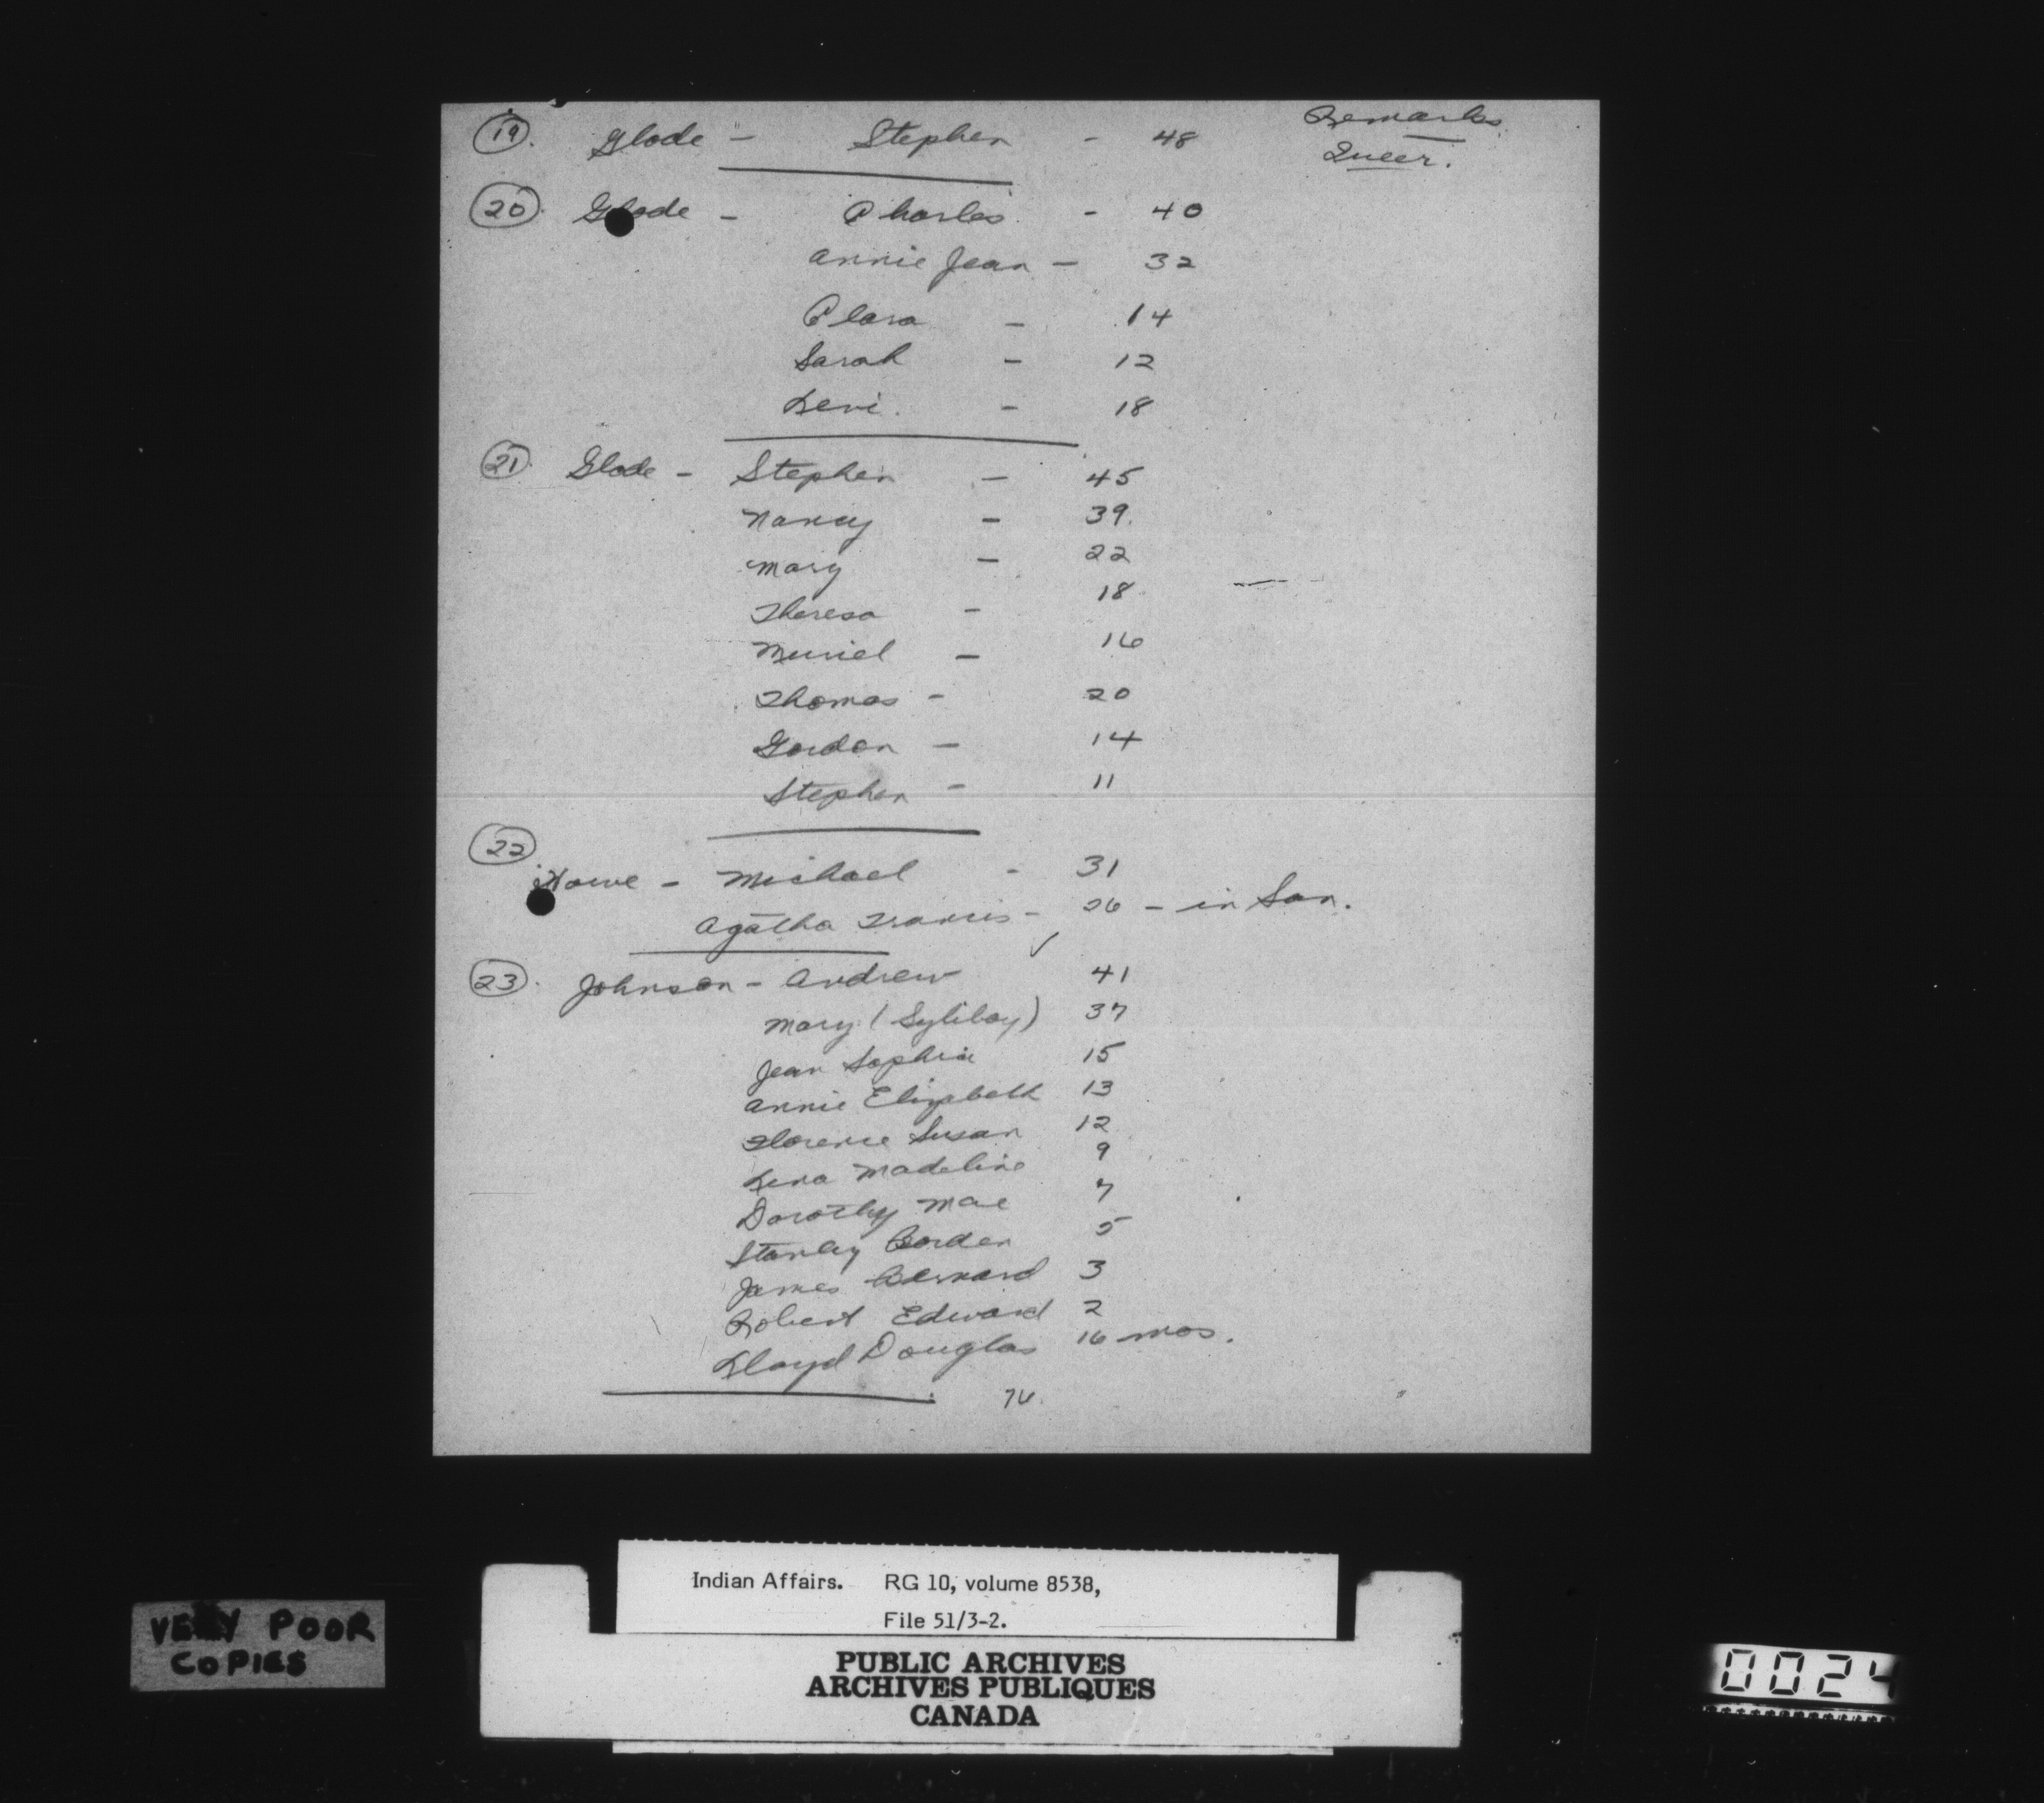 Remarks
19. Glode - Stephen - 48 Queer.
20. Glode - Charles - 40
Annie Jean - 32
Clara - 14
Sarah - 12
Levi. - 18
21. Glode - Stephen - 45
Nancy - 39.
Mary - 22
Theresa - 18
Muriel - 16
Thomas - 20
Gordon - 14
Stephen - 11
22
Howe - Michael - 31
Agatha Francis - 26 - in San.
23. Johnson - Andrew 41
Mary (Syliboy) 37
Jean Sophie 15
Annie Elizabeth 13
Florence Susan 12
Lena Madeline 9
Dorothy Mae 7
Stanley Borden 5
James Bernard 3
Robert Edward 2
Lloyd Douglas 16 mos.
Indian Affairs. RG 10, volume 8538,
File 51/3-2.
PUBLIC ARCHIVES
ARCHIVES PUBLIQUES
CANADA
VERY POOR
COPIES
0024